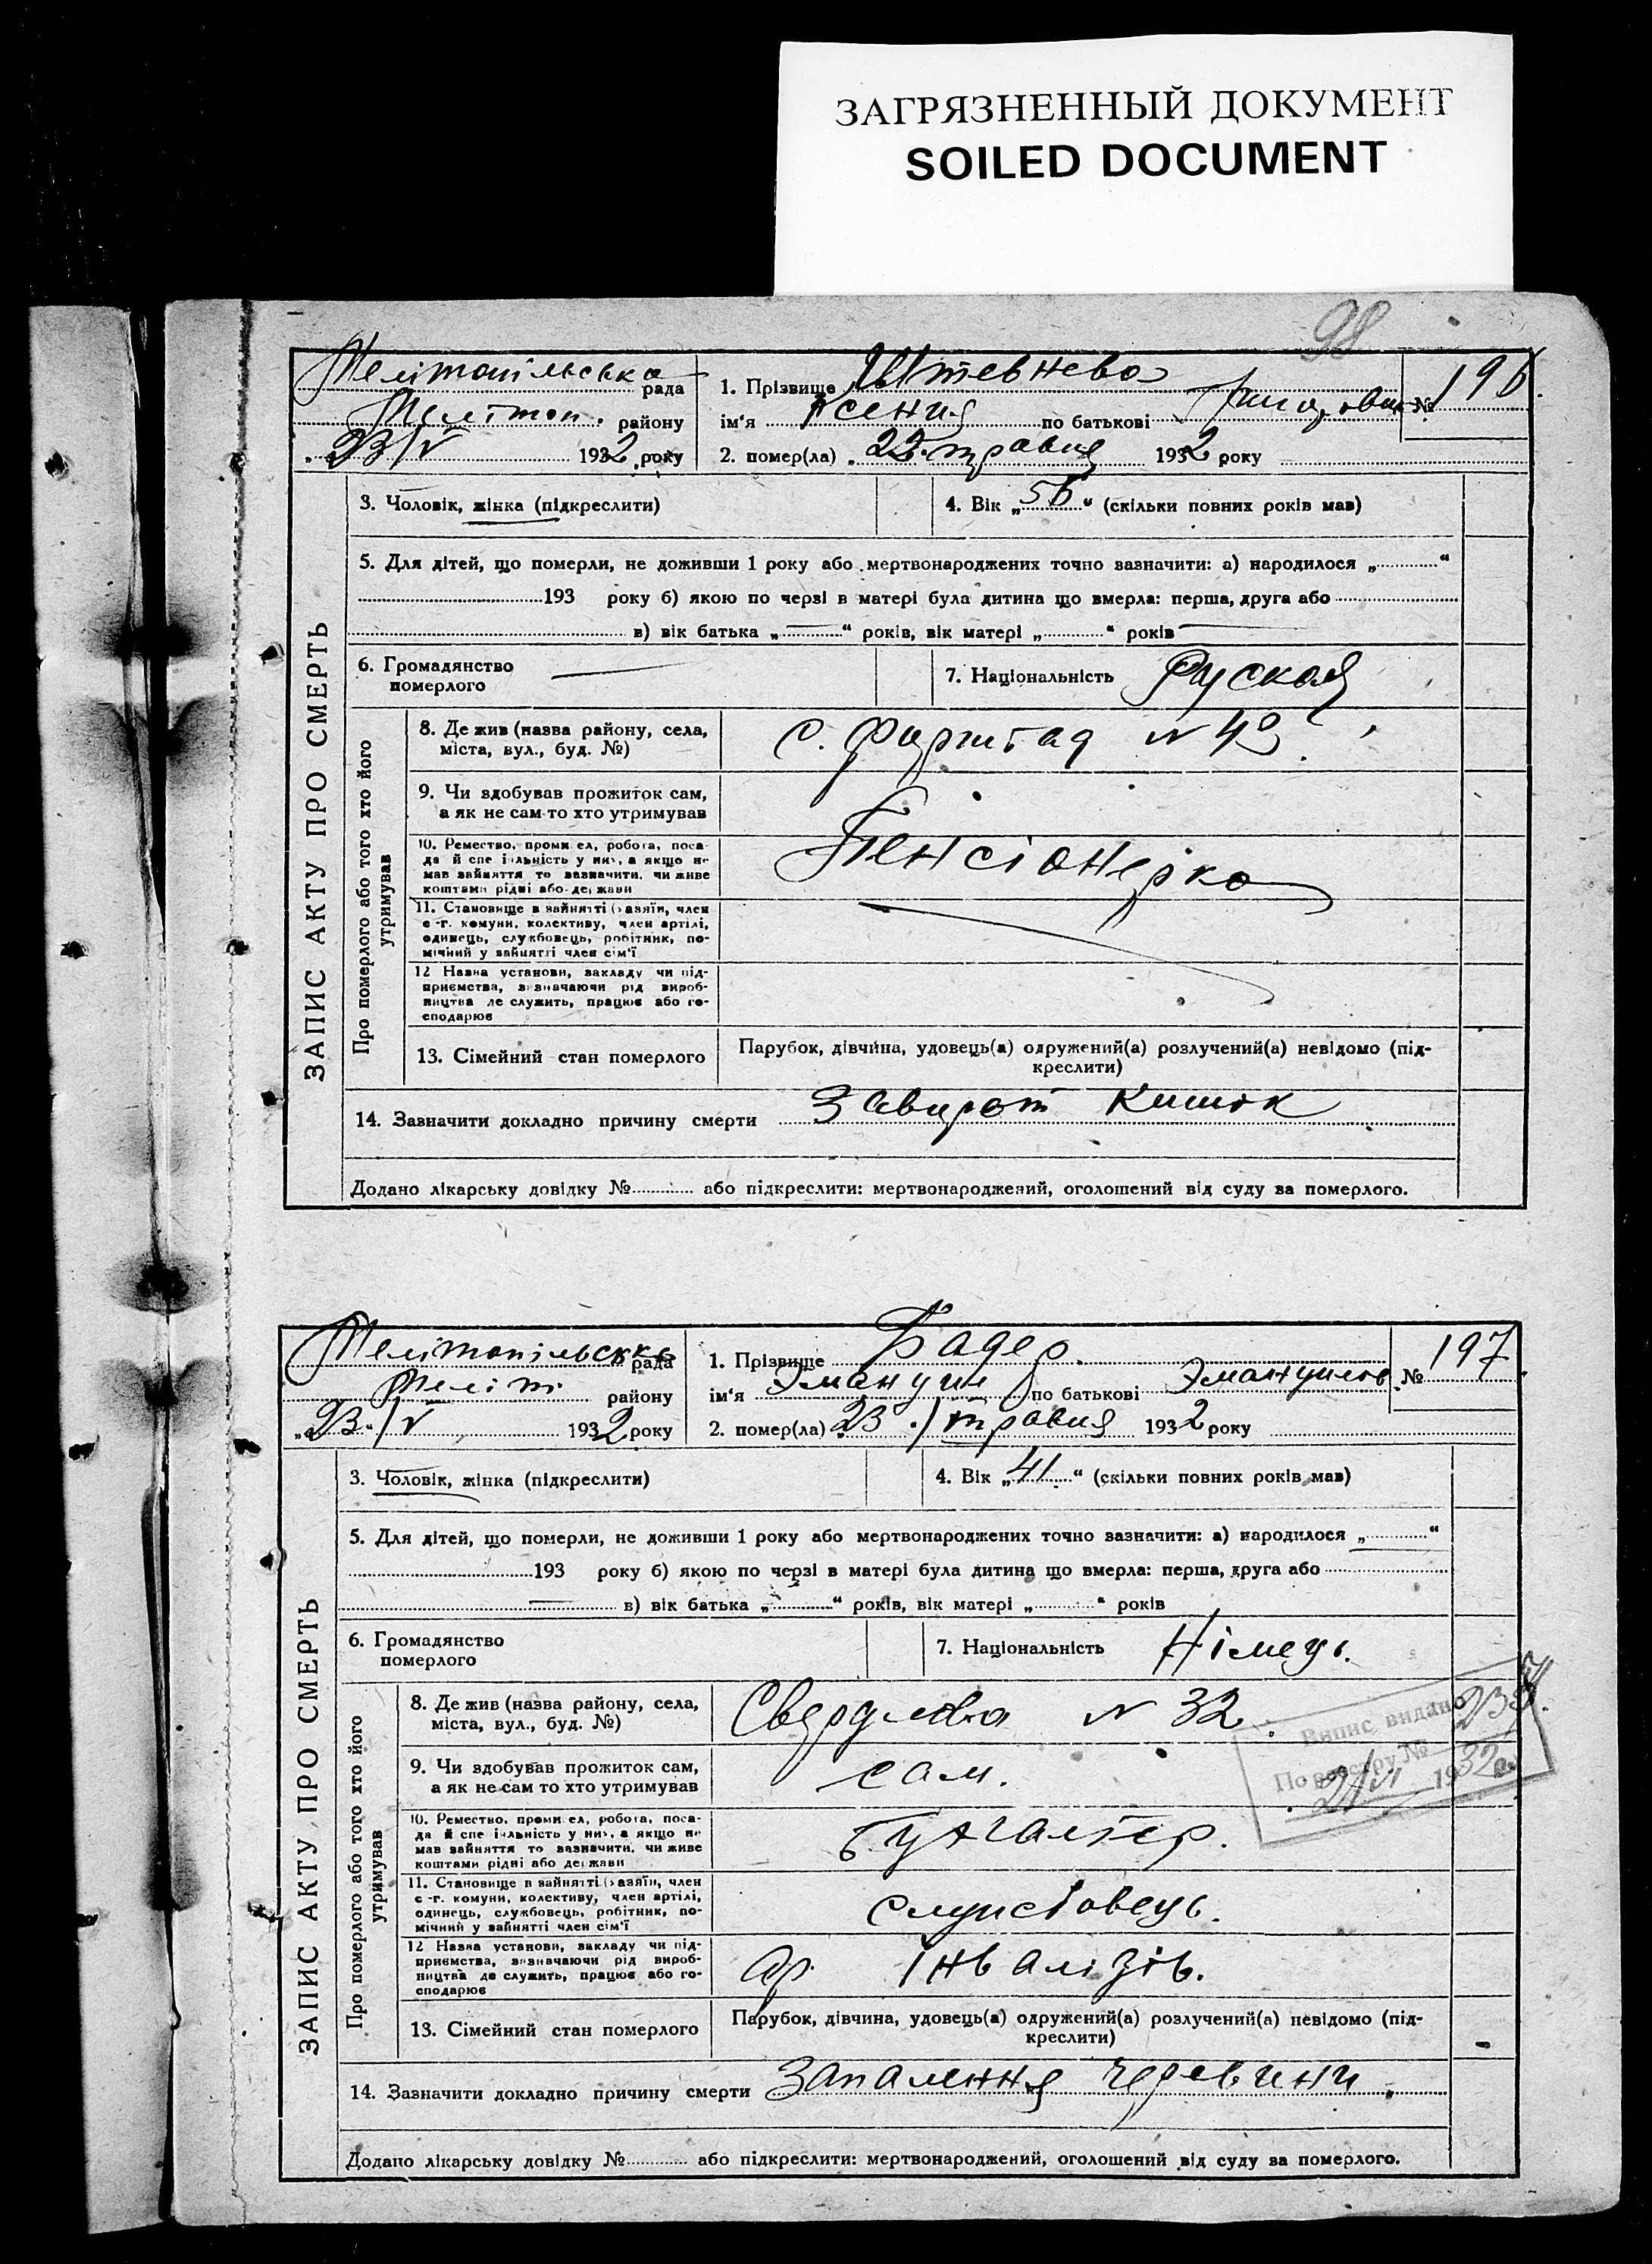 ЗАГРЯЗНЕННЫЙ ДОКУМЕНТ
SOILED DOCUMENT
98
Мелітопільська рада
Мелітоп. району
„23/V 1932 року
1. Прізвище Штевнева
ім'я Ксения по батькові
2. помер(ла) „22 травня 1932 року
№ 196
ЗАПИС АКТУ ПРО СМЕРТЬ
3. Чоловік, жінка (підкреслити)
4. Вік „56“ (скільки повних років мав)
5. Для дітей, що померли, не доживши 1 року або мертвонароджених точно зазначити: а) народилося „ “
193 року б) якою по черзі в матері була дитина що вмерла: перша, друга або
в) вік батька „ “ років, вік матері „ “ років
6. Громадянство
померлого
7. Національність Руская
Про померлого або того хто його
утримував
8. Де жив (назва району, села,
міста, вул., буд. №)
с. Форштад N 49
9. Чи здобував прожиток сам,
а як не сам то хто утримував
10. Ремество, промисел, робота, поса-
да й спеціяльність у них, а якщо не
мав зайняття то зазначити, чи живе
коштами рідні або держави
Пенсіонерка
11. Становище в зайнятті (хазяїн, член
с.-г. комуни, колективу, член артілі,
одинець, службовець, робітник, по-
мічний у зайнятті член сім'ї
12 Назва установи, закладу чи під-
приємства, зазначаючи рід вироб-
ництва де служить, працює або го-
сподарює
13. Сімейний стан померлого
Парубок, дівчина, удовець(а) одружений(а) розлучений(а) невідомо (під-
креслити)
14. Зазначити докладно причину смерти Заворот кишок
Додано лікарську довідку № або підкреслити: мертвонароджений, оголошений від суду за померлого.
Мелітопільська рада
Меліт району
„23“/V 1932 року
1. Прізвище Бадер
ім'я Эмануил по батькові Эмануилов
2. помер(ла) „23 / травня 1932 року
№ 197
ЗАПИС АКТУ ПРО СМЕРТЬ
3. Чоловік, жінка (підкреслити)
4. Вік „41“ (скільки повних років мав)
5. Для дітей, що померли, не доживши 1 року або мертвонароджених точно зазначити: а) народилося „ “
193 року б) якою по черзі в матері була дитина що вмерла: перша, друга або
в) вік батька „ “ років, вік матері „ “ років
6. Громадянство
померлого
7. Національність Німець.
Про померлого або того хто його
утримував
8. Де жив (назва району, села,
міста, вул., буд. №)
Свердлова N 32.
Випис видано
По реєстру №
21/VI 1932 р.
9. Чи здобував прожиток сам,
а як не сам то хто утримував
сам.
10. Ремество, промисел, робота, поса-
да й спеціяльність у них, а якщо не
мав зайняття то зазначити, чи живе
коштами рідні або держави
Бухгалтер.
11. Становище в зайнятті (хазяїн, член
с.-г. комуни, колективу, член артілі,
одинець, службовець, робітник, по-
мічний у зайнятті член сім'ї
служовець.
12 Назва установи, закладу чи під-
приємства, зазначаючи рід вироб-
ництва де служить, працює або го-
сподарює
ар. Інвалідів.
13. Сімейний стан померлого
Парубок, дівчина, удовець(а) одружений(а) розлучений(а) невідомо (під-
креслити)
14. Зазначити докладно причину смерти Запалення черевини.
Додано лікарську довідку № або підкреслити: мертвонароджений, оголошений від суду за померлого.